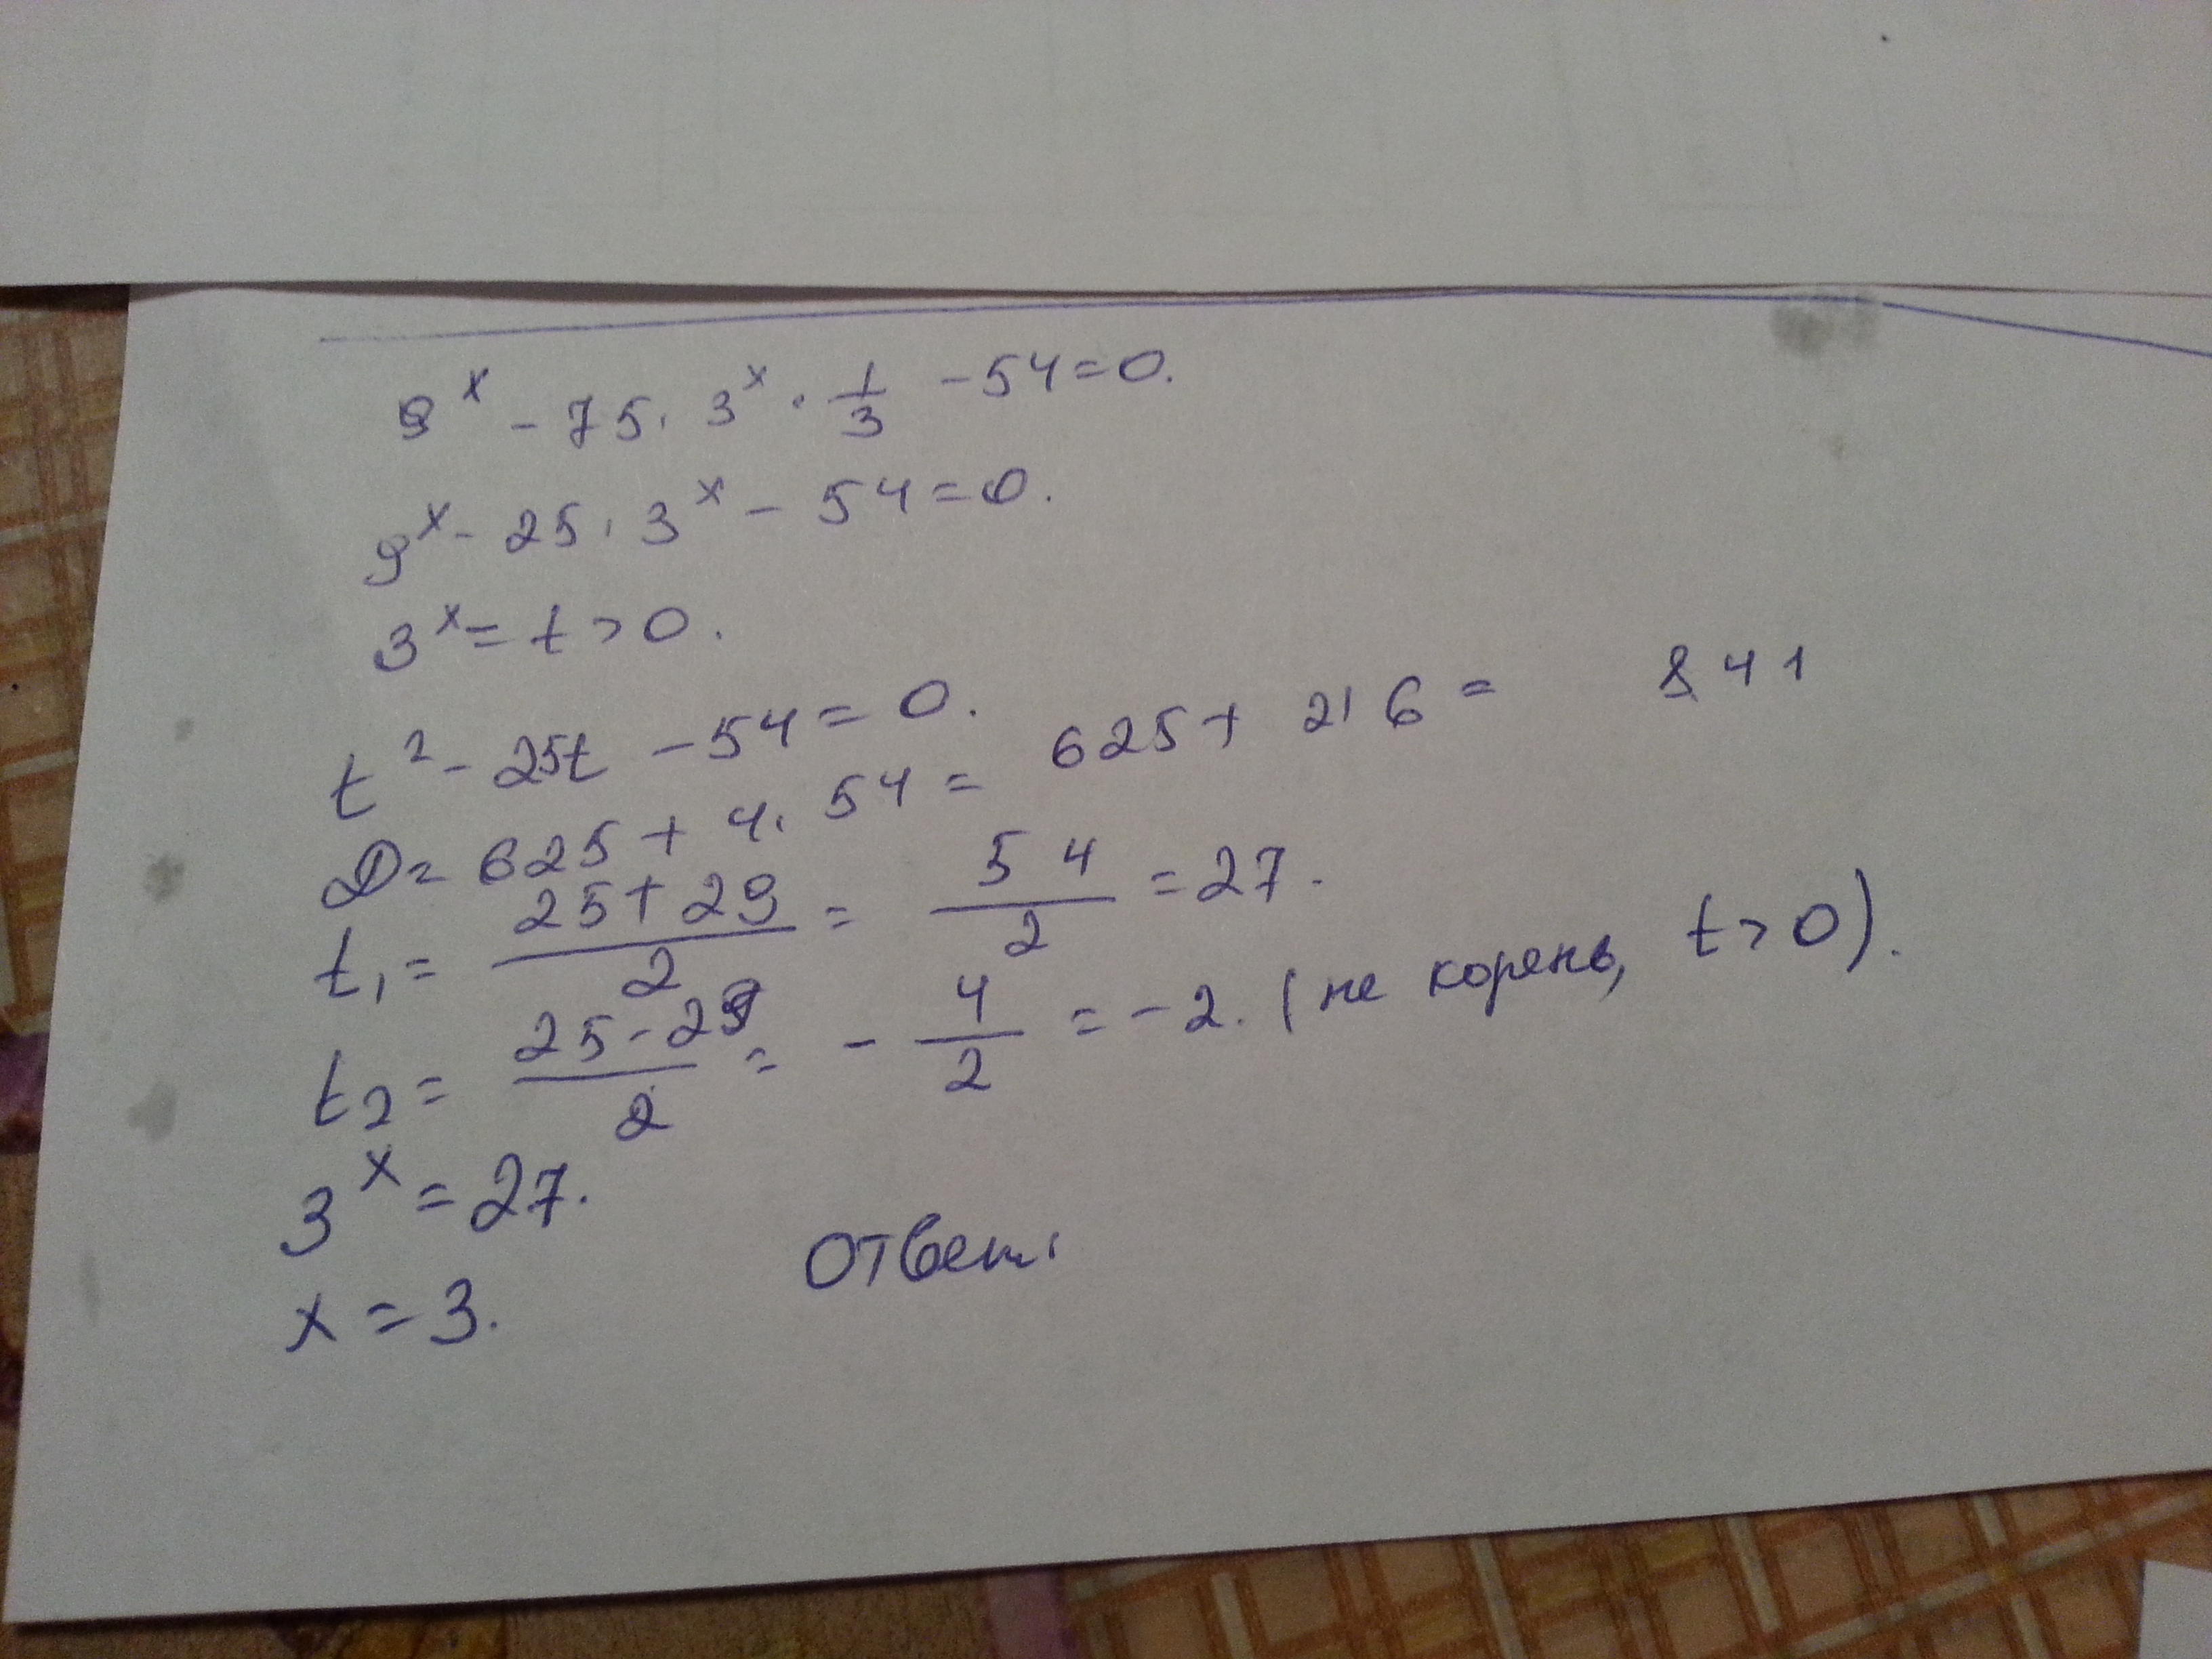 9^x - 75 · 3^x · 1/3 - 54 = 0.
9^x - 25 · 3^x - 54 = 0.
3^x = t > 0.
t^2 - 25t - 54 = 0.
D = 625 + 4 · 54 = 625 + 216 = 841
t1 = (25 + 29)/2 = 54/2 = 27.
t2 = (25 - 29)/2 = - 4/2 = -2. (не корень, t > 0).
3^x = 27.
x = 3. Ответ: